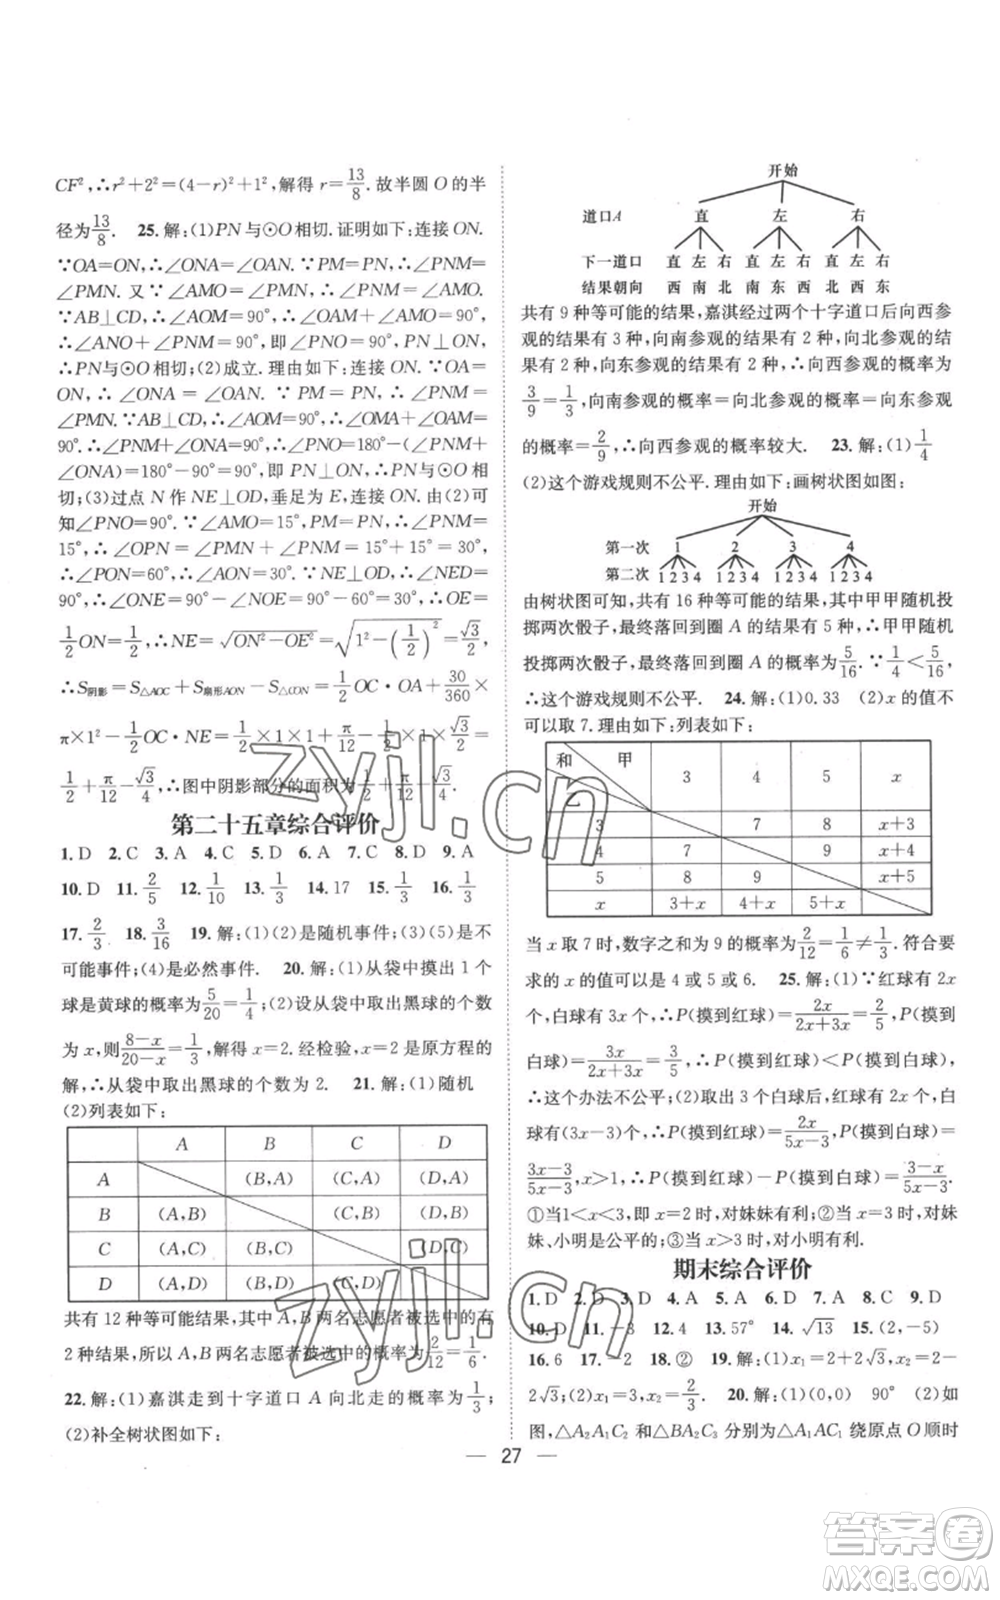 CF², ∴r²+2²=(4-r)²+1², 解得 r=13/8. 故半圆 O 的半
径为13/8. 25. 解:(1)PN 与⊙O 相切. 证明如下:连接 ON.
∵OA=ON, ∴∠ONA=∠OAN. ∵PM=PN, ∴∠PNM=
∠PMN. 又∵∠AMO=∠PMN, ∴∠PNM=∠AMO.
∵AB⊥CD, ∴∠AOM=90°. ∴∠AMO+∠OAM=90°.
∴∠ANO+∠PNM=90°, 即∠PNO=90°, PN⊥ON,
∴PN与⊙O相切;(2)成立. 理由如下:连接 ON. ∵OA=
ON, ∴∠ONA=∠OAN. ∵PM=PN, ∴∠PNM=
∠PMN. ∵AB⊥CD, ∴∠AOM=90°. ∴∠OMA+∠OAM=
90°. ∴∠PNM+∠ONA=90°. ∴∠PNO=180°-(∠PNM+
∠ONA)=180°-90°=90°, 即 PN⊥ON, ∴PN与⊙O相
切;(3)过点 N 作 NE⊥OD, 垂足为 E, 连接 ON. 由(2)可
知∠PNO=90°. ∵∠AMO=15°, PM=PN, ∴∠PNM=
15°, ∴∠OPN=∠PMN+∠PNM=15°+15°=30°,
∴∠PON=60°, ∴∠AON=30°. ∵NE⊥OD, ∴∠NED=
90°. ∴∠ONE=90°-∠PON=90°-60°=30°. ∴OE=
1/2 ON=1/2. ∴NE=√(ON²-OE²)=√(1²-(1/2)²)=√3/2.
∴S阴影=S△AOC+S扇形AON-S△CON=1/2 OC·OA+30/360×
π×1²-1/2 OC·NE=1/2×1×1+π/12-1/2×1×√3/2=
1/2+π/12-√3/4, ∴图中阴影部分的面积为1/2+π/12-√3/4.
第二十五章综合评价
1. D 2. C 3. A 4. C 5. D 6. C 7. C 8. D 9. A
10. D 11. 2/5 12. 1/10 13. 1/3 14. 17 15. 1/3 16. 1/3
17. 2/3 18. 3/16 19. 解:(1)(2)是随机事件;(3)(5)是不
可能事件;(4)是必然事件. 20. 解:(1)从袋中摸出 1 个
球是黄球的概率为5/20=1/4;(2)设从袋中取出黑球的个数
为 x, 则(8-x)/(20-x)=1/3, 解得 x=2. 经检验, x=2 是原方程的
解, ∴从袋中取出黑球的个数为 2. 21. 解:(1)随机
(2)列表如下:
A B C D
A (B,A) (C,A) (D,A)
B (A,B) (C,B) (D,B)
C (A,C) (B,C) (D,C)
D (A,D) (B,D) (C,D)
共有 12 种等可能结果, 其中 A, B 两名志愿者被选中的有
2 种结果, 所以 A, B 两名志愿者被选中的概率为2/12=1/6.
22. 解:(1)嘉淇走到十字道口 A 向北走的概率为1/3;
(2)补全树状图如下:
开始
道口A 直 左 右
下一道口 直 左 右 直 左 右 直 左 右
结果朝向 西 南 北 南 东 西 北 西 东
共有 9 种等可能的结果, 嘉淇经过两个十字道口后向西参
观的结果有 3 种, 向南参观的结果有 2 种, 向北参观的结
果有 2 种, 向东参观的结果有 2 种, ∴向西参观的概率为
3/9=1/3, 向南参观的概率=向北参观的概率=向东参观
的概率=2/9, ∴向西参观的概率较大. 23. 解:(1)1/4
(2)这个游戏规则不公平. 理由如下:画树状图如图:
开始
第一次 1 2 3 4
第二次 1 2 3 4 1 2 3 4 1 2 3 4 1 2 3 4
由树状图可知, 共有 16 种等可能的结果, 其中甲甲随机投
掷两次骰子, 最终落回到圈 A 的结果有 5 种, ∴甲甲随机
投掷两次骰子, 最终落回到圈 A 的概率为5/16. ∵1/4<5/16,
∴这个游戏规则不公平. 24. 解:(1)0.33 (2)x 的值不
可以取 7. 理由如下:列表如下:
和 甲 3 4 5 x
3 7 8 x+3
4 7 9 x+4
5 8 9 x+5
x 3+x 4+x 5+x
当 x 取 7 时, 数字之和为 9 的概率为2/12=1/6≠1/3. 符合要
求的 x 的值可以是 4 或 5 或 6. 25. 解:(1)∵红球有 2x
个, 白球有 3x 个, ∴P(摸到红球)=2x/(2x+3x)=2/5, P(摸到
白球)=3x/(2x+3x)=3/5. ∴P(摸到红球)<P(摸到白球),
∴这个办法不公平;(2)取出 3 个白球后, 红球有 2x 个, 白
球有(3x-3)个, ∴P(摸到红球)=2x/(5x-3), P(摸到白球)=
(3x-3)/(5x-3), x>1, ∴P(摸到红球)-P(摸到白球)=(3-x)/(5x-3).
①当1<x<3, 即 x=2 时, 对妹妹有利;②当 x=3 时, 对妹
妹、小明是公平的;③当 x>3 时, 对小明有利.
期末综合评价
1. D 2. D 3. D 4. A 5. A 6. D 7. A 8. C 9. D
10. D 11. -3 12. 4 13. 57° 14. √13 15. (2,-5)
16. 6 17. -2 18. ② 19. 解:(1)x₁=2+2√3, x₂=2-
2√3;(2)x₁=3, x₂=2/3. 20. 解:(1)(0,0) 90° (2)如
图, △A₂A₁C₂ 和△BA₂C₃ 分别为△A₁AC₁ 绕原点 O 顺时
27
zyjl.cn
zyjl.cn
答案圈
MXQE.COM